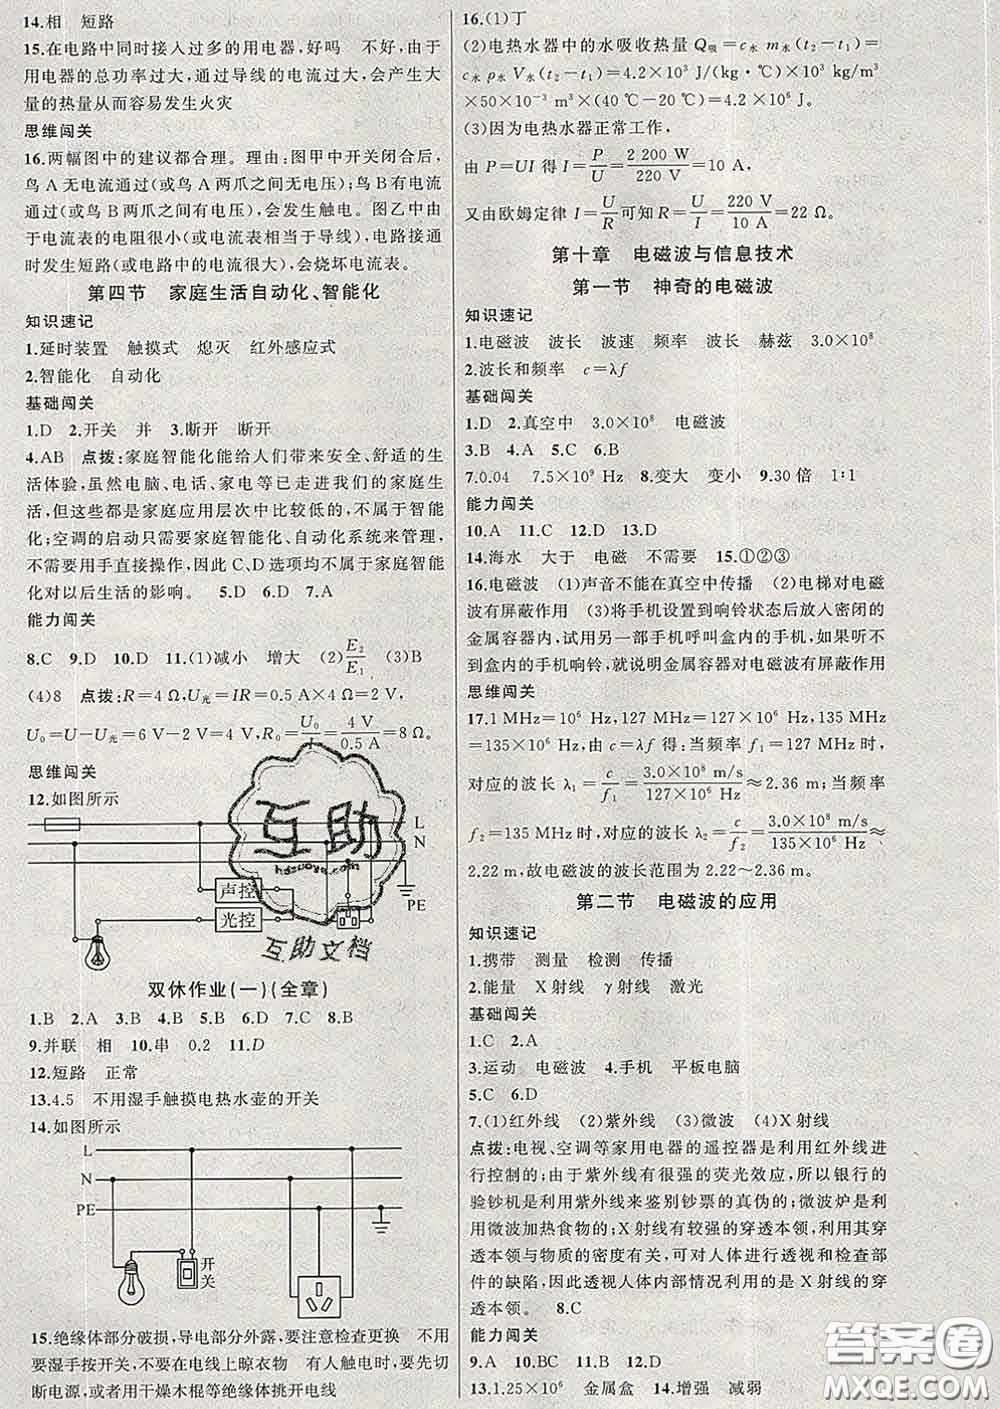 14.相　短路
15.在电路中同时接入过多的用电器,好吗　不好,由于
用电器的总功率过大,通过导线的电流过大,会产生大
量的热量从而容易发生火灾
思维闯关
16.两幅图中的建议都合理。理由:图甲中开关闭合后,
鸟 A 无电流通过(或鸟 A 两爪之间无电压),鸟 B 有电流
通过(或鸟 B 两爪之间有电压),会发生触电。图乙中由
于电流表的电阻很小(或电流表相当于导线),电路接通
时发生短路(或电路中的电流很大),会烧坏电流表。
第四节　家庭生活自动化、智能化
知识速记
1.延时装置　触摸式　熄灭　红外感应式
2.智能化　自动化
基础闯关
1.D　2.开关　并　3.断开　断开
4.AB　点拨:家庭智能化能给人们带来安全、舒适的生
活体验,虽然电脑、电话、家电等已走进我们的家庭生
活,但这些都是家庭应用层次中比较低的,不属于智能
化;空调的启动只需要家庭智能化、自动化系统来管理,
不需要用手直接操作,因此 C、D 选项均不属于家庭智能
化对以后生活的影响。　5.D　6.D　7.A
能力闯关
8.C　9.D　10.D　11.(1)减小　增大　(2)E₂/E₁　(3)B
(4)8　点拨:R=4 Ω,U光=IR=0.5 A×4 Ω=2 V,
U₀=U－U光=6 V－2 V=4 V,R₀=U₀/I=4 V/0.5 A=8 Ω。
思维闯关
12.如图所示
L
N
PE
声控
光控
互助
hdzuoye.com
互助文档
双休作业(一)(全章)
1.B　2.A　3.B　4.B　5.B　6.D　7.C　8.B
9.并联　相　10.串　0.2　11.D
12.短路　正常
13.4.5　不用湿手触摸电热水壶的开关
14.如图所示
L
N
PE
开
关
15.绝缘体部分破损,导电部分外露,要注意检查更换　不用
要湿手按开关,不要在电线上晾衣物　有人触电时,要先切
断电源,或者用干燥木棍等绝缘体挑开电线
16.(1)丁
(2)电热水器中的水吸收热量 Q吸=c水 m水(t₂－t₁)=
c水 ρ水 V水(t₂－t₁)=4.2×10³ J/(kg·℃)×10³ kg/m³
×50×10⁻³ m³×(40 ℃－20 ℃)=4.2×10⁶ J。
(3)因为电热水器正常工作,
由 P=UI 得 I=P/U=2 200 W/220 V=10 A,
又由欧姆定律 I=U/R 可知 R=U/I=220 V/10 A=22 Ω。
第十章　电磁波与信息技术
第一节　神奇的电磁波
知识速记
1.电磁波　波长　波速　频率　波长　赫兹　3.0×10⁸
2.波长和频率　c=λf
基础闯关
1.D　2.真空中　3.0×10⁸　电磁波
3.B　4.A　5.C　6.B
7.0.04　7.5×10⁹ Hz　8.变大　变小　9.30 倍　1∶1
能力闯关
10.A　11.C　12.D　13.D
14.海水　大于　电磁　不需要　15.①②③
16.电磁波　(1)声音不能在真空中传播　(2)电梯对电磁
波有屏蔽作用　(3)将手机设置到响铃状态后放入密闭的
金属容器内,试用另一部手机呼叫盒内的手机,如果听不
到盒内的手机响铃,就说明金属容器对电磁波有屏蔽作用
思维闯关
17.1 MHz=10⁶ Hz,127 MHz=127×10⁶ Hz,135 MHz
=135×10⁶ Hz,由 c=λf 得:当频率 f₁=127 MHz 时,
对应的波长 λ₁=c/f₁=3.0×10⁸ m/s/127×10⁶ Hz≈2.36 m; 当频率
f₂=135 MHz 时,对应的波长 λ₂=c/f₂=3.0×10⁸ m/s/135×10⁶ Hz≈
2.22 m,故电磁波的波长范围为 2.22～2.36 m。
第二节　电磁波的应用
知识速记
1.携带　测量　检测　传播
2.能量　X 射线　γ 射线　激光
基础闯关
1.C　2.A
3.运动　电磁波　4.手机　平板电脑
5.C　6.D
7.(1)红外线　(2)紫外线　(3)微波　(4)X 射线
点拨:电视、空调等家用电器的遥控器是利用红外线进
行控制的;由于紫外线有很强的荧光效应,所以银行的
验钞机是利用紫外线来鉴别钞票的真伪的;微波炉是利
用微波加热食物的;X 射线有较强的穿透本领,利用其穿
透本领与物质的密度有关,可对人体进行透视和检查部
件的缺陷,因此透视人体内部情况利用的是 X 射线的穿
透本领。　8.C
能力闯关
9.A　10.BC　11.B　12.D
13.1.25×10⁶　金属盒　14.增强　减弱
答案圈
MXQE.COM